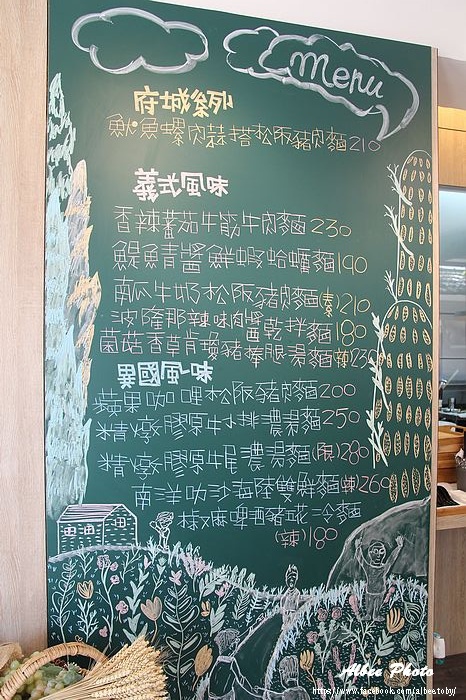 menu
府城系列
魷魚螺肉蒜搭松阪豬肉麵210
義式風味
香辣蕃茄牛筋牛肉麵230
鯷魚青醬鮮蝦蛤蠣麵190
南瓜牛奶松阪豬肉麵(素)210
波隆那辣味肉醬乾拌麵180
菌菇香草肉燥豬捧服湯麵辣230
異國風味
蘋果咖哩松阪豬肉麵200
精燉膠原牛小排濃湯麵250
精燉膠原牛尾濃湯麵(限)280
南洋叻沙海陸雙鮮麵(辣)260
椒麻啤酒豬 冷麵
(辣)180
Albee Photo
https://www.facebook.com/albee.toby/